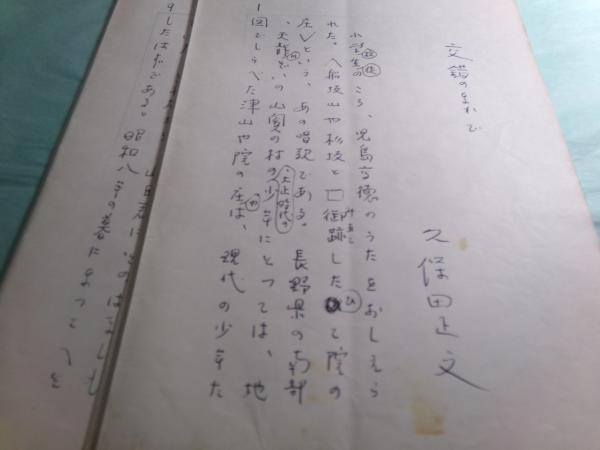 久保田正文
小学生のころ、児島高徳のうたをおしえら
れた。〈船坂山や杉坂と 御跡したひて院の
みあと
庄〉という、あの唱歌である。長野県の南部
、天龍ぞいの山奥の村の大正時代の少年にとっては、地
図でしらべた津山や院の庄は、現代の少年た
したはずである。昭和八年の春に